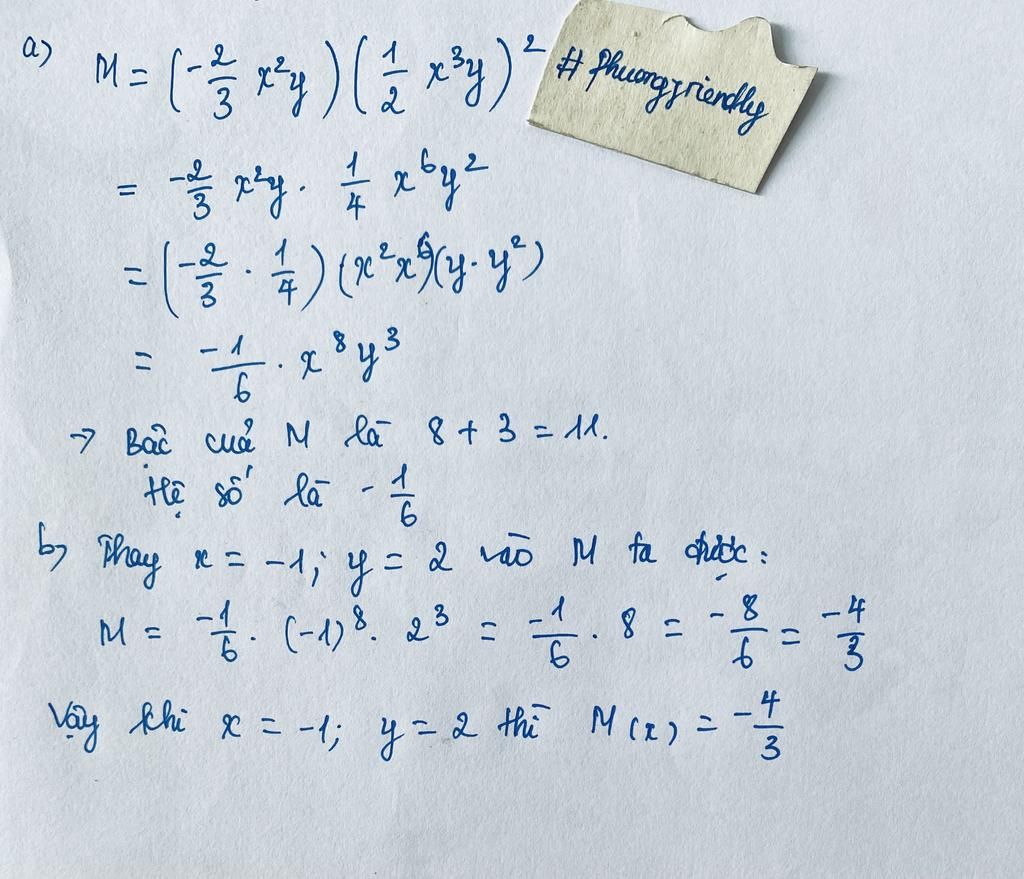 a) M = (-2/3 x²y)(1/2 x³y)²
#Phuongfriendly
= -2/3 x²y . 1/4 x⁶y²
= (-2/3 . 1/4) (x²x⁶)(y.y²)
= -1/6 . x⁸y³
→ Bậc của M là 8 + 3 = 11.
Hệ số là -1/6
b) Thay x = -1; y = 2 vào M ta được:
M = -1/6 . (-1)⁸ . 2³ = -1/6 . 8 = -8/6 = -4/3
Vậy khi x = -1; y = 2 thì M(x) = -4/3